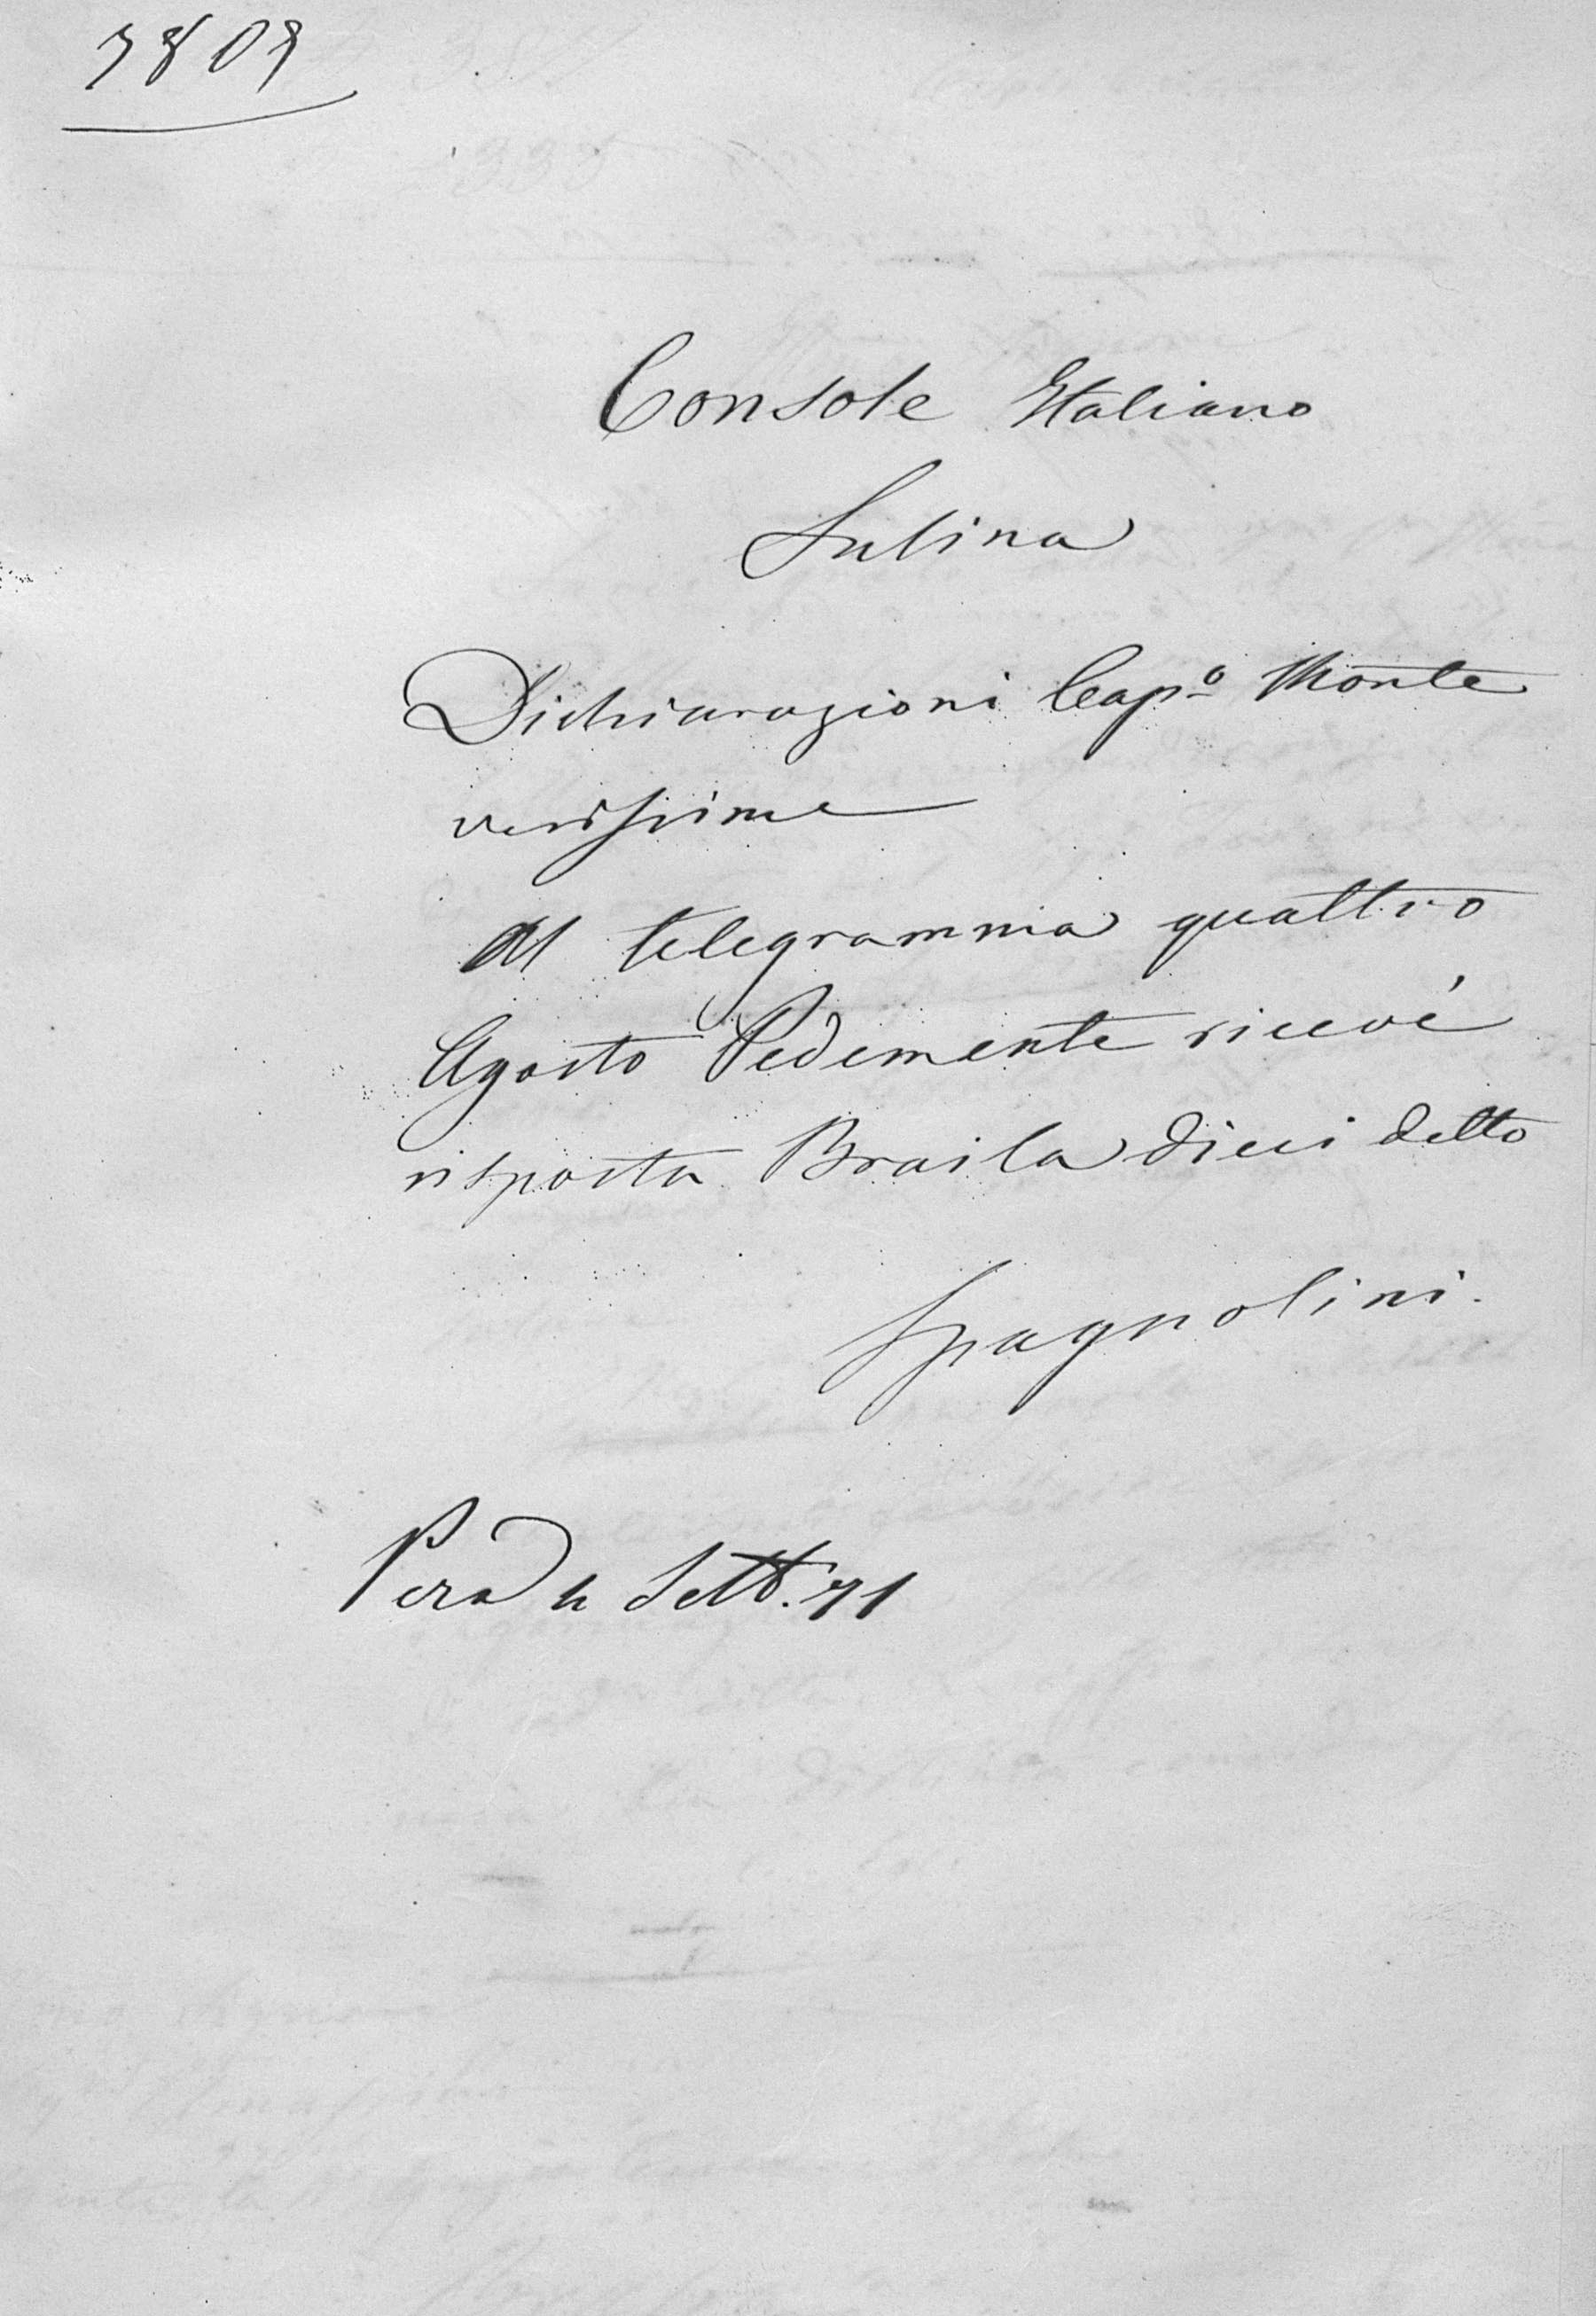 3809
Console Italiano
Sulina
Dichiarazioni Cap.º Monte
verissime
Al telegramma quattro
Agosto Pedemente ricevé
risposta Braila dieci detto
Spagnolini.
Pera 4 Sett. 71